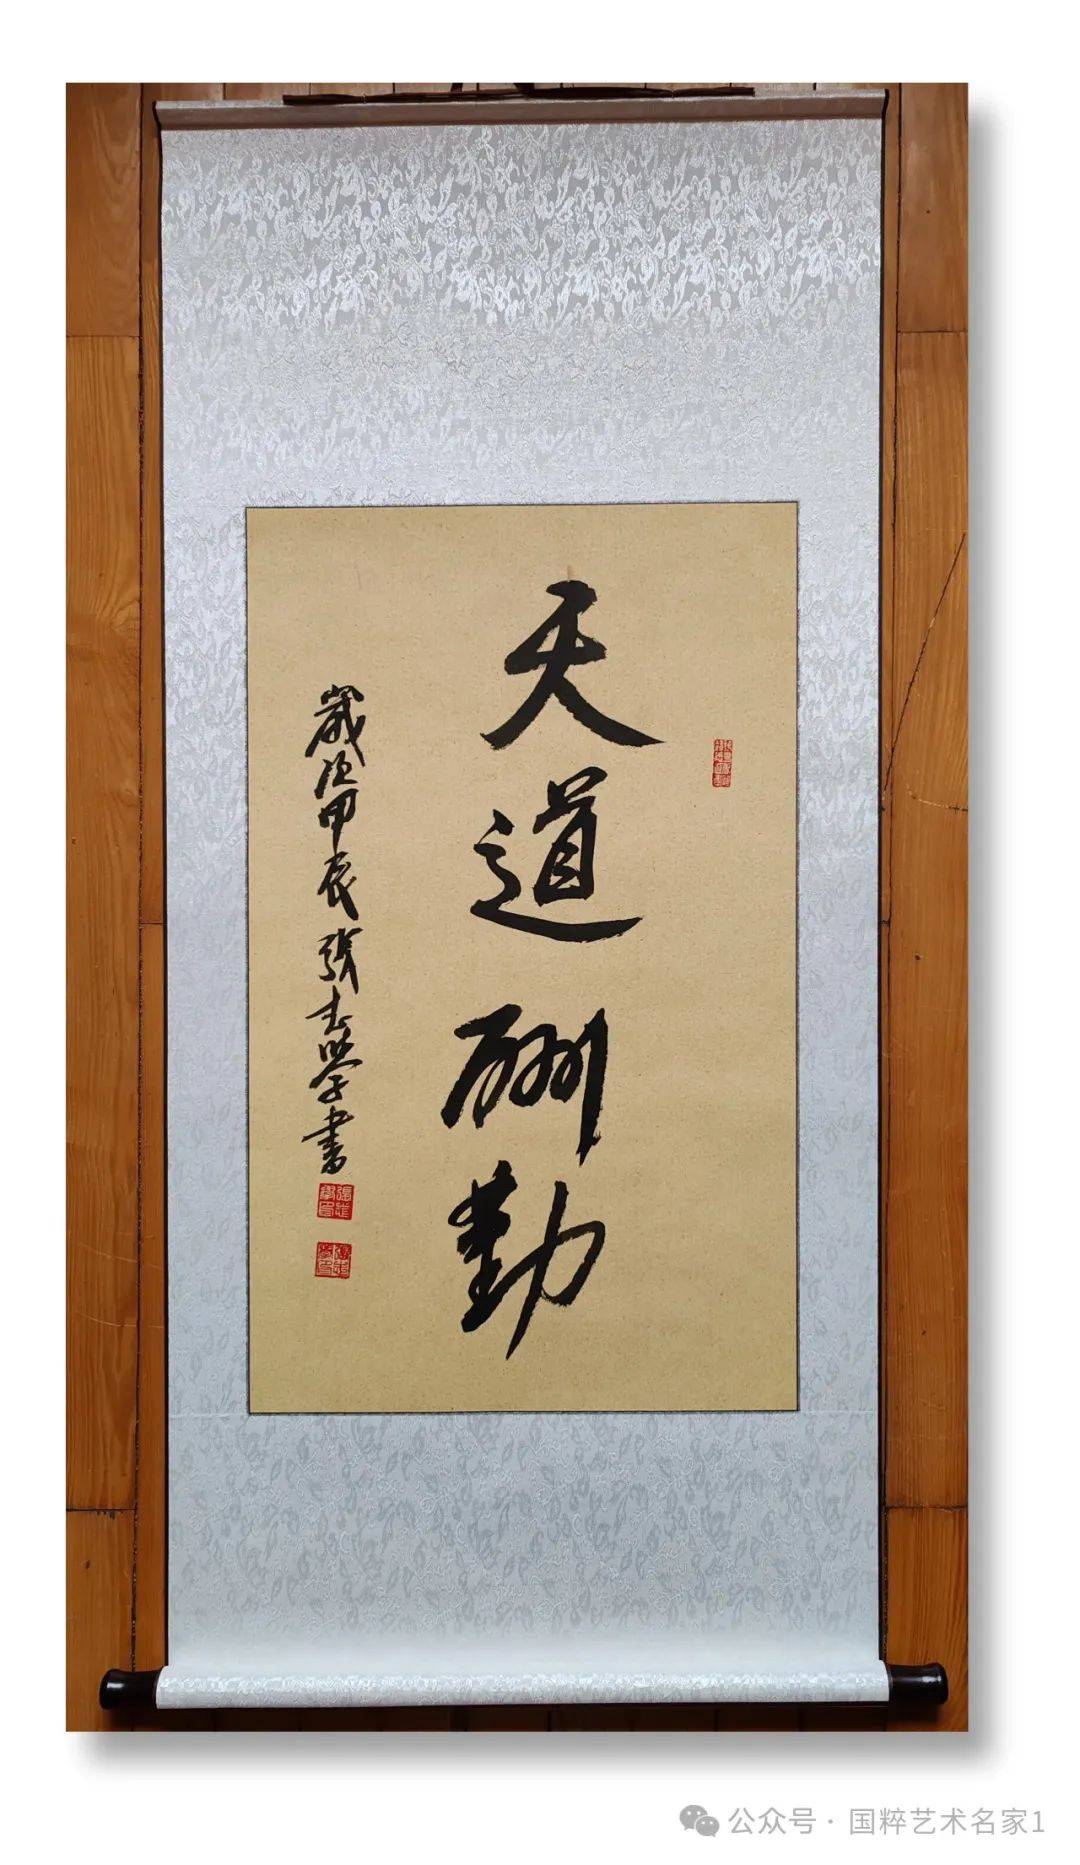 天道酬勤
歲次甲辰張志學書
公众号·国粹艺术名家1